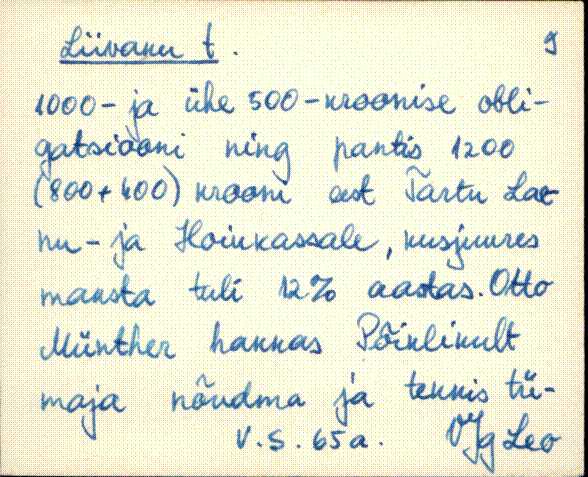 Liivaku t. 9
1000- ja ühe 500-kroonise obli-
gatsiooni ning pantis 1200
(800+400) krooni eest Tartu Lae-
nu- ja Hoiukassale, kusjuures
maksta tuli 12% aastas. Otto
Münther hakkas Põiklikult
maja nõudma ja tekkis tü-
V.S. 65a. Leo